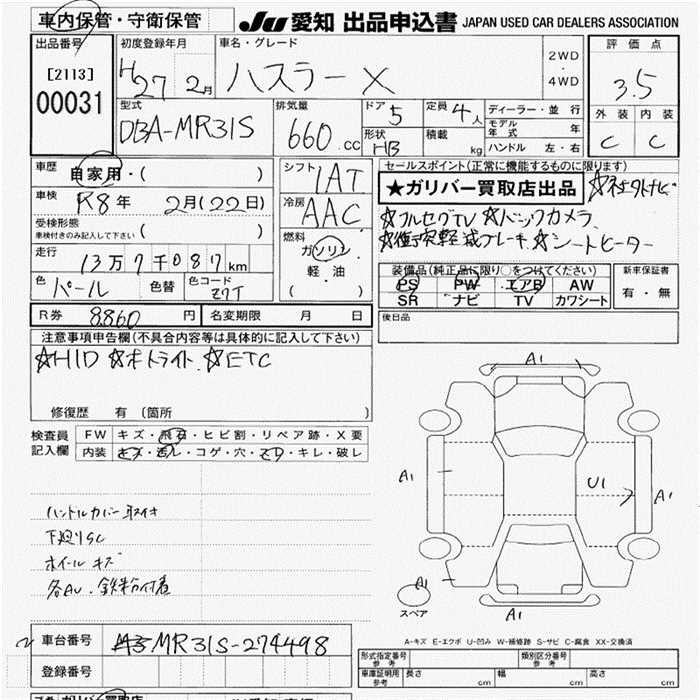 車内保管・守衛保管 JU 愛知 出品申込書 JAPAN USED CAR DEALERS ASSOCIATION
出品番号 初度登録年月 車名・グレード 評価点
[2113] H27 2月 ハスラー X 2WD・4WD 3.5
00031
型式 排気量 ドア 5 定員 4人 ディーラー・並行 外装 内装
DBA-MR31S 660.cc 形状 HB 積載 kg モデル年式 年 C C
ハンドル 左・右
車歴 自家用・( ) シフト IAT セールスポイント(正常に機能するものに限ります)
車検 R8年 2月(22日) 冷房 AAC ★ガリバー買取店出品
受検形態 ( )
車検付きのみ記入して下さい
☆フルセグTV ☆バックカメラ
☆衝突軽減ブレーキ ☆シートヒーター
走行 13万7千087km 燃料 ガソリン 軽油 ( )
色 パール 色替 色コード Z7T
装備品(純正品に限り○をつけてください) 新車保証書
PS PW エアB AW 有・無
SR ナビ TV カワシート
R券 8,860円 名変期限 月 日 後日品
注意事項申告欄(不具合内容等は具体的に記入して下さい)
☆HID ☆オートライト ☆ETC
修復歴 有 (箇所 )
検査員記入欄 FW キズ・飛石・ヒビ割・リペア跡・X要
内装 キズ・汚レ・コゲ・穴・スレ・キレ・破レ
A1
A1 U1 A1
ハンドルカバー取付
下廻りSC
ホイールキズ
各AU・鉄粉付着
A1
スペア A1
A-キズ E-エクボ U-凹み W-補修跡 S-サビ C-腐食 XX-交換済
車台番号 MR31S-274498
登録番号
形式指定番号 参考 類別区分番号 参考
車庫証明用 参考 長さ cm 幅 cm 高さ cm